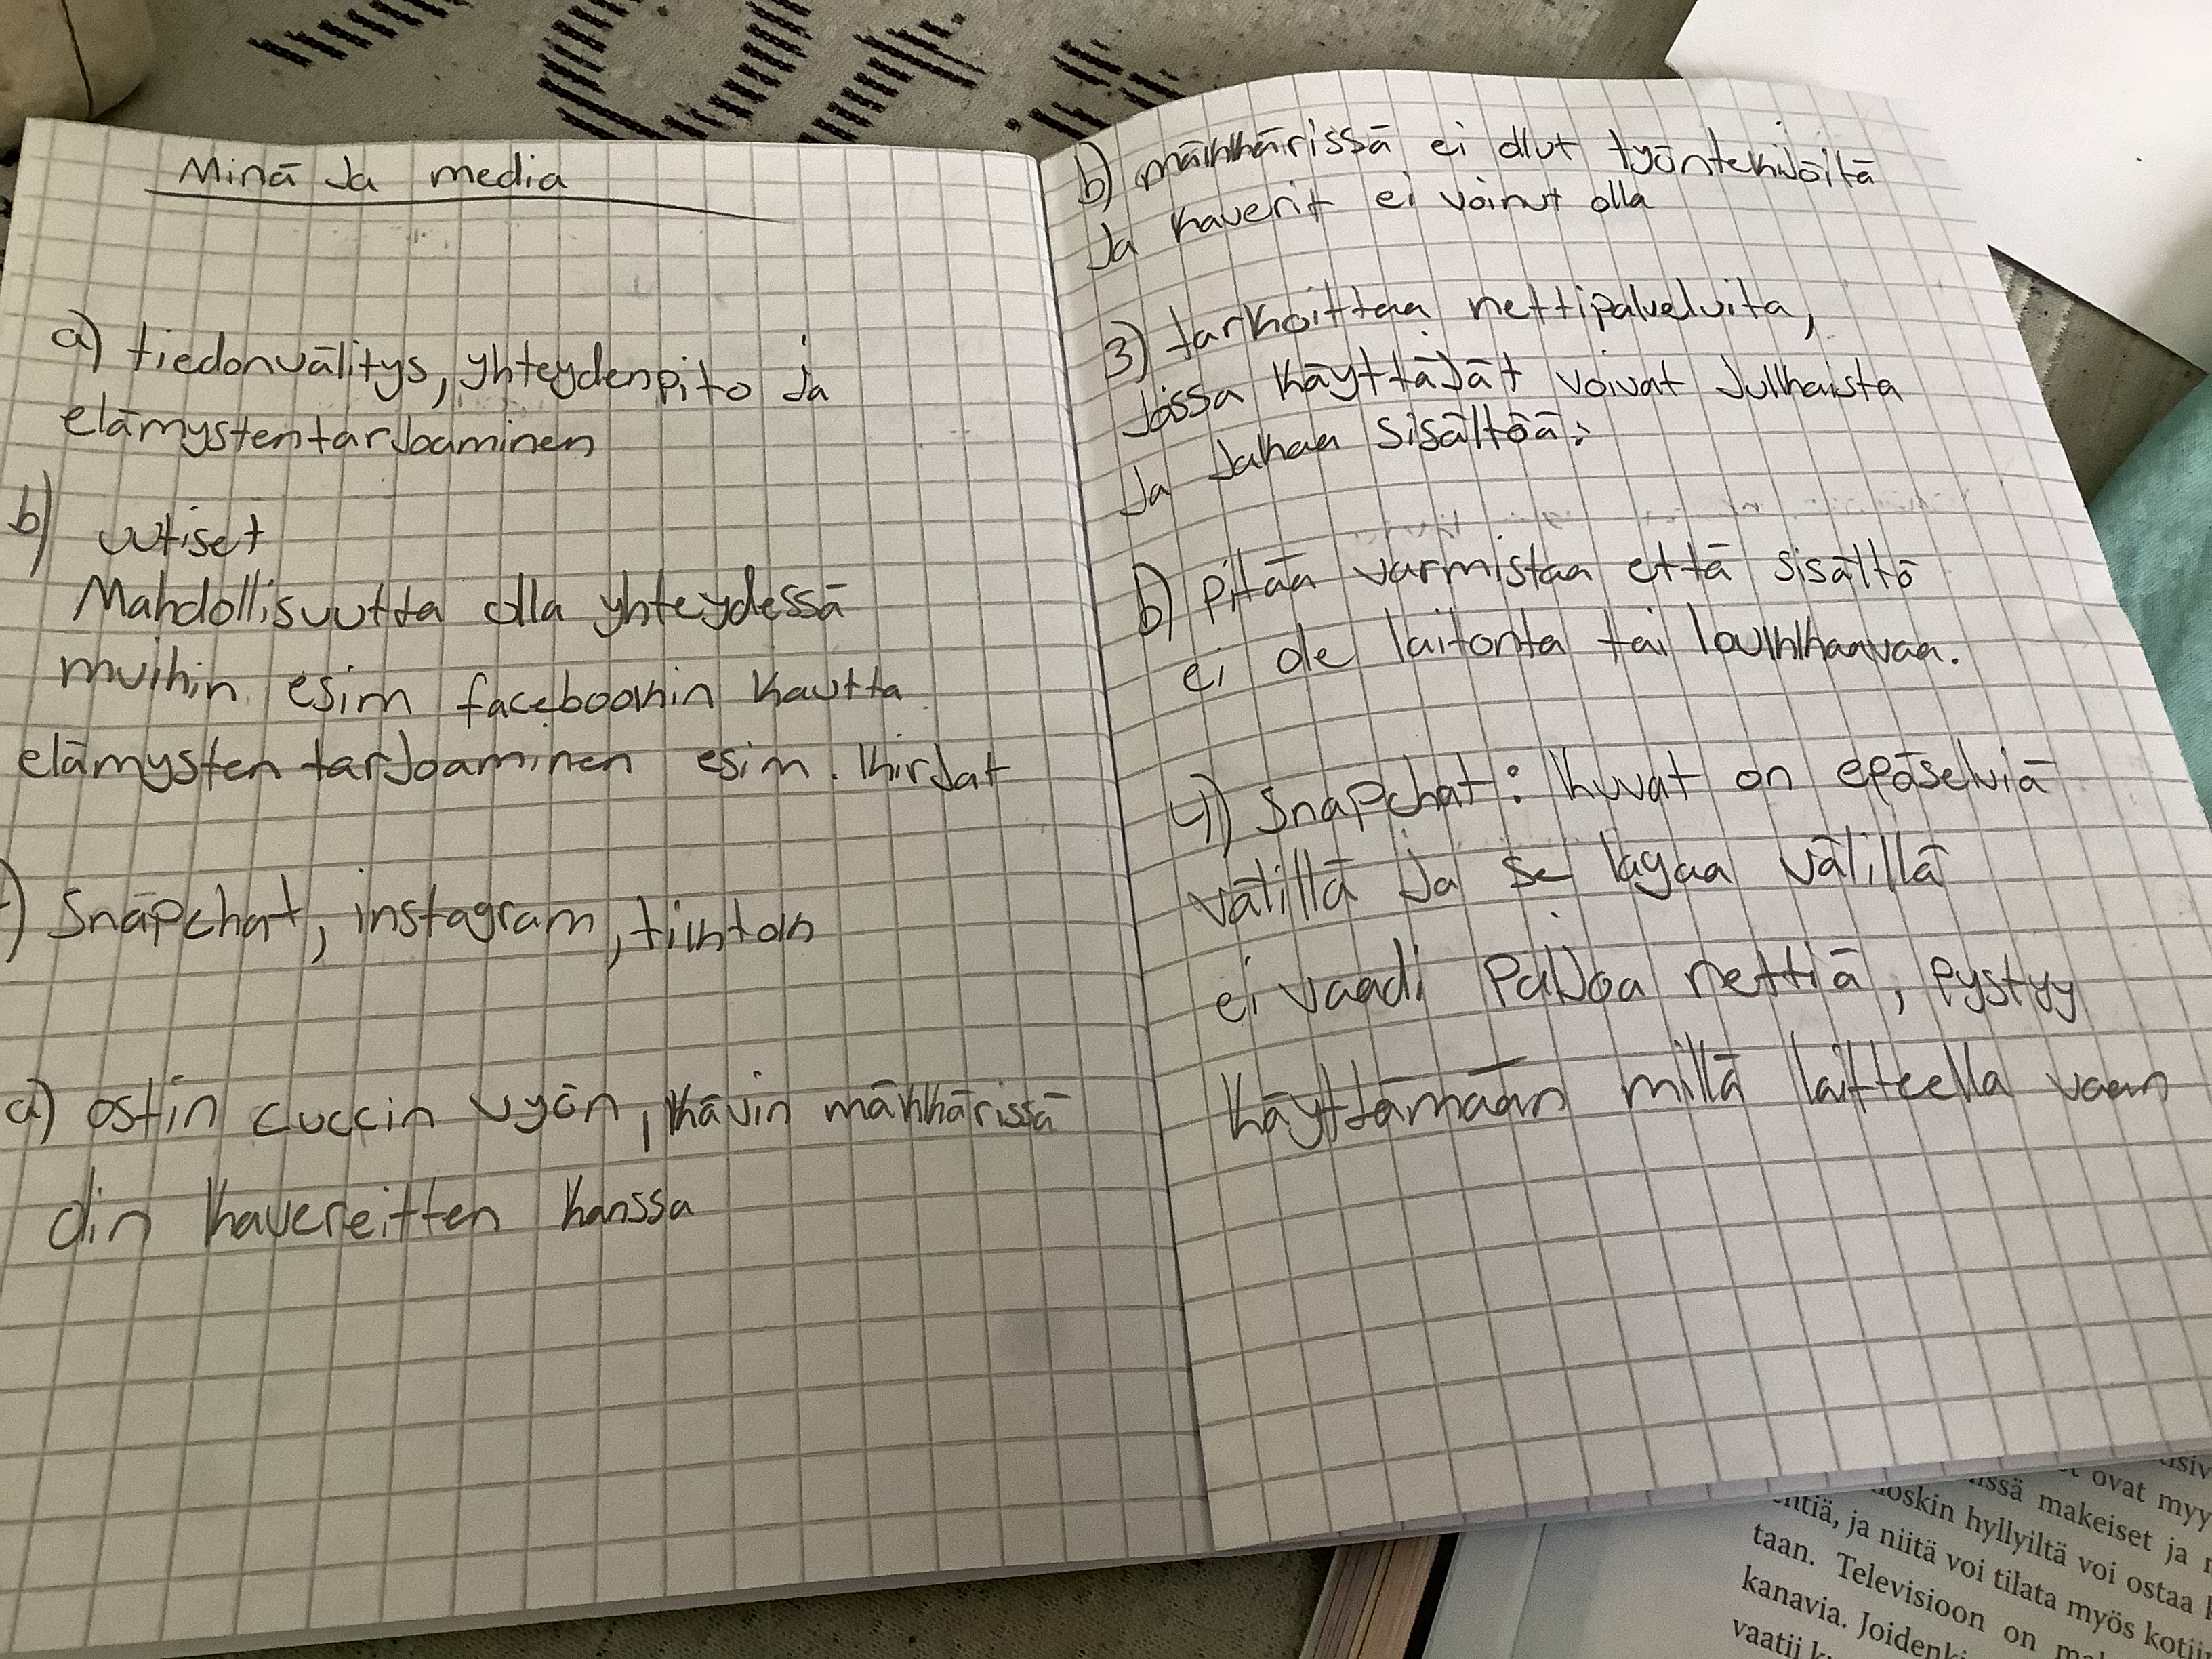 Minä Ja media
a) tiedonvälitys, yhteydenpito Ja
elämystentarJoaminen
b) uutiset
Mahdollisuutta olla yhteydessä
muihin esim facebookin kautta
elämysten tarJoaminen esim. kirJat
) Snapchat, instagram, tiktok
a) ostin cuccin vyön, kävin mäkkärissä
olin kavereitten kanssa
b) mäkkärissä ei ollut työntekiJöitä
Ja kaverit ei voinut olla
3) tarkoittaa nettipalveluita,
Joissa käyttäJät voivat Julkaista
Ja Jakaa sisältöä.
b) pitää varmistaa että sisältö
ei ole laitonta tai loukkaavaa.
4) Snapchat: kuvat on epäselviä
välillä Ja se lagaa välillä
ei vaadi palJoa nettiä, pystyy
käyttämään millä laitteella vaan
ovat myy
issä makeiset ja
oskin hyllyiltä voi ostaa
entiä, ja niitä voi tilata myös kotiin
taan. Televisioon on
kanavia. Joidenki
vaatii